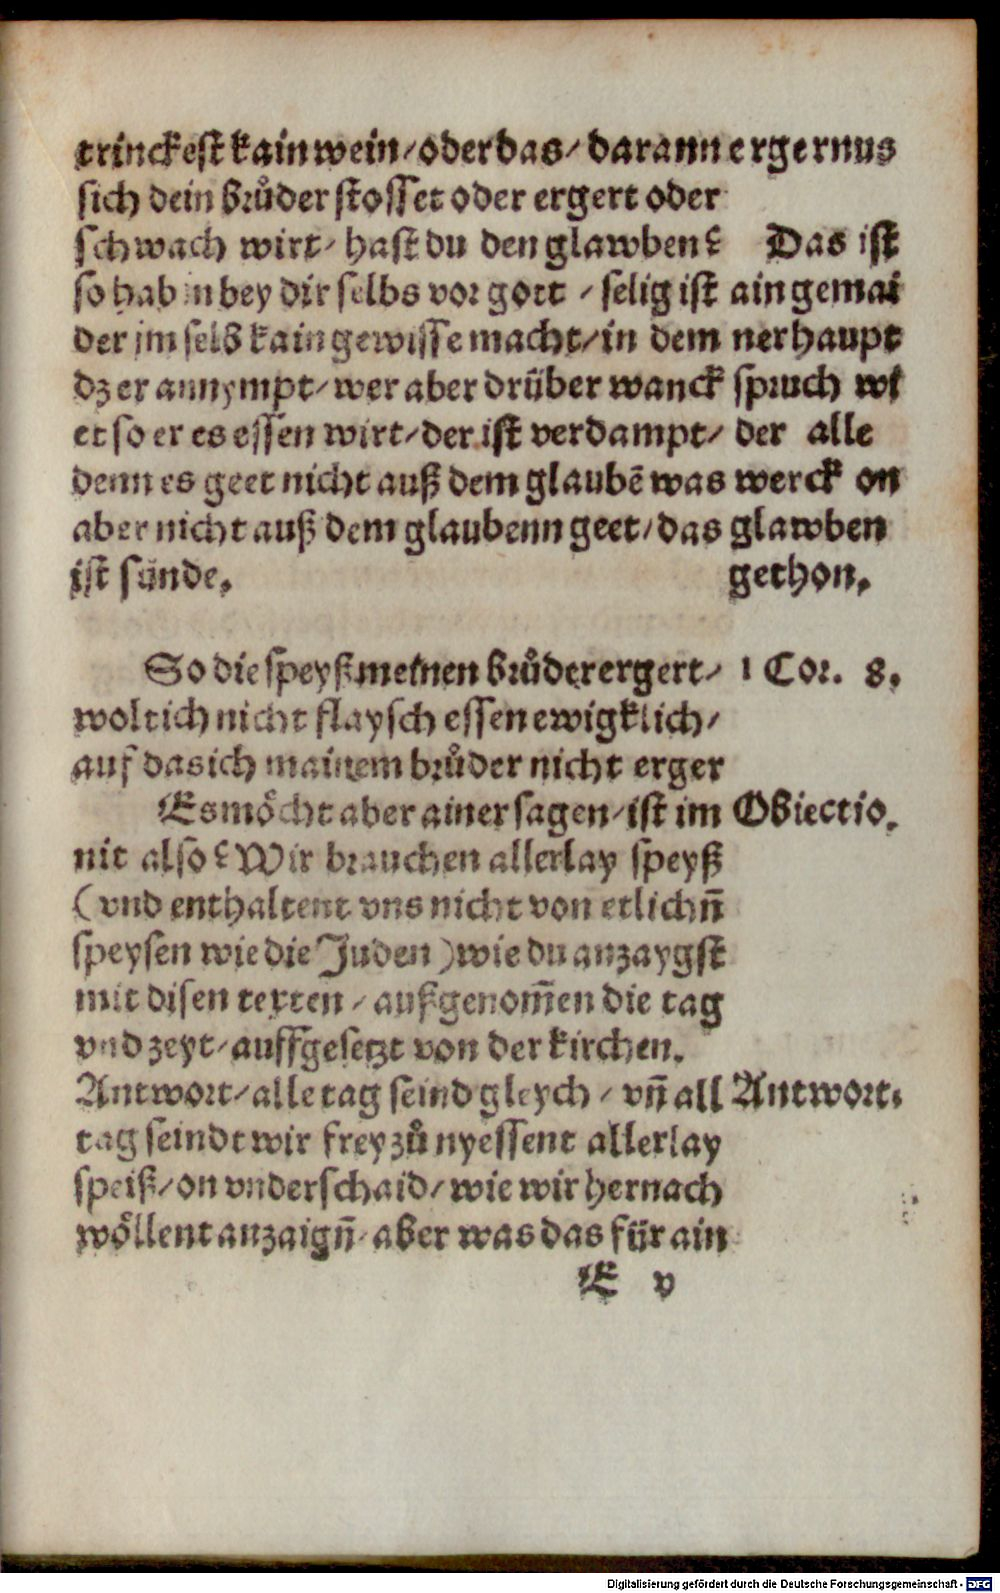 trinckest kain wein/ oder das/ darann ergernus
sich dein brůder stosset oder ergert oder
schwach wirt/ hast du den glawben? Das ist
so hab in bey dir selbs vor gott / selig ist ain gemai
der jm selb kain gewisse macht/ in dem ner haupt
dz er annympt/ wer aber drüber wanck spruch wi
et so er es essen wirt/ der ist verdampt/ der alle
denn es geet nicht auß dem glaubē was werck on
aber nicht auß dem glaubenn geet/ das glawben
ist sünde. gethon.
So die speyß meinen brůder ergert/ 1 Cor. 8.
wolt ich nicht flaysch essen ewigklich/
auf das ich mainem brůder nicht erger
Es möcht aber ainer sagen/ ist im Obiectio.
nit also? Wir brauchen allerlay speyß
(vnd enthaltent vns nicht von etlichn̄
speysen wie die Juden) wie du anzaygst
mit disen texten / außgenom̄en die tag
vnd zeyt/ auffgesetzt von der kirchen.
Antwort/ alle tag seind gleych / vn̄ all Antwort.
tag seindt wir frey zů nyessent allerlay
speiß/ on vnderschaid/ wie wir hernach
wöllent anzaign̄/ aber was das für ain
E v
Digitalisierung gefördert durch die Deutsche Forschungsgemeinschaft - DFG